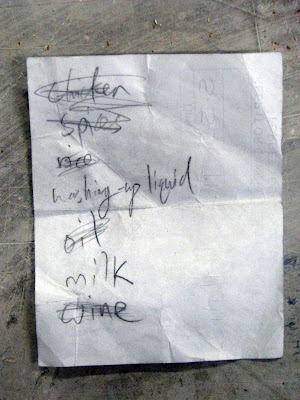 chicken
spices
rice
washing-up liquid
oil
milk
wine